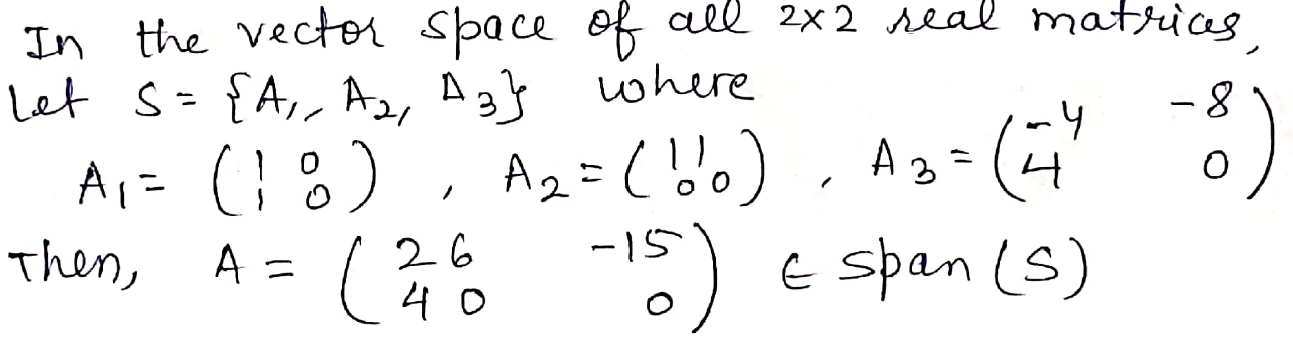 In the vector space of all 2x2 real matrices,
Let S = {A₁, A₂, A₃} where
A₁ = (1 0
1 0), A₂ = (1 1
0 0), A₃ = (-4 -8
4 0)
Then, A = (26 -15
40 0) ∈ span (S)